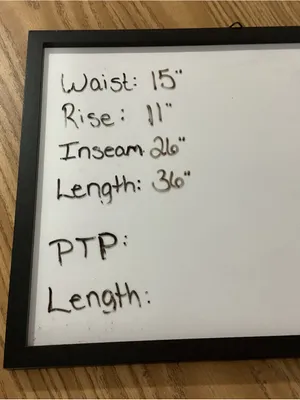 Waist: 15"
Rise: 11"
Inseam 26"
Length: 36"
PTP:
Length: